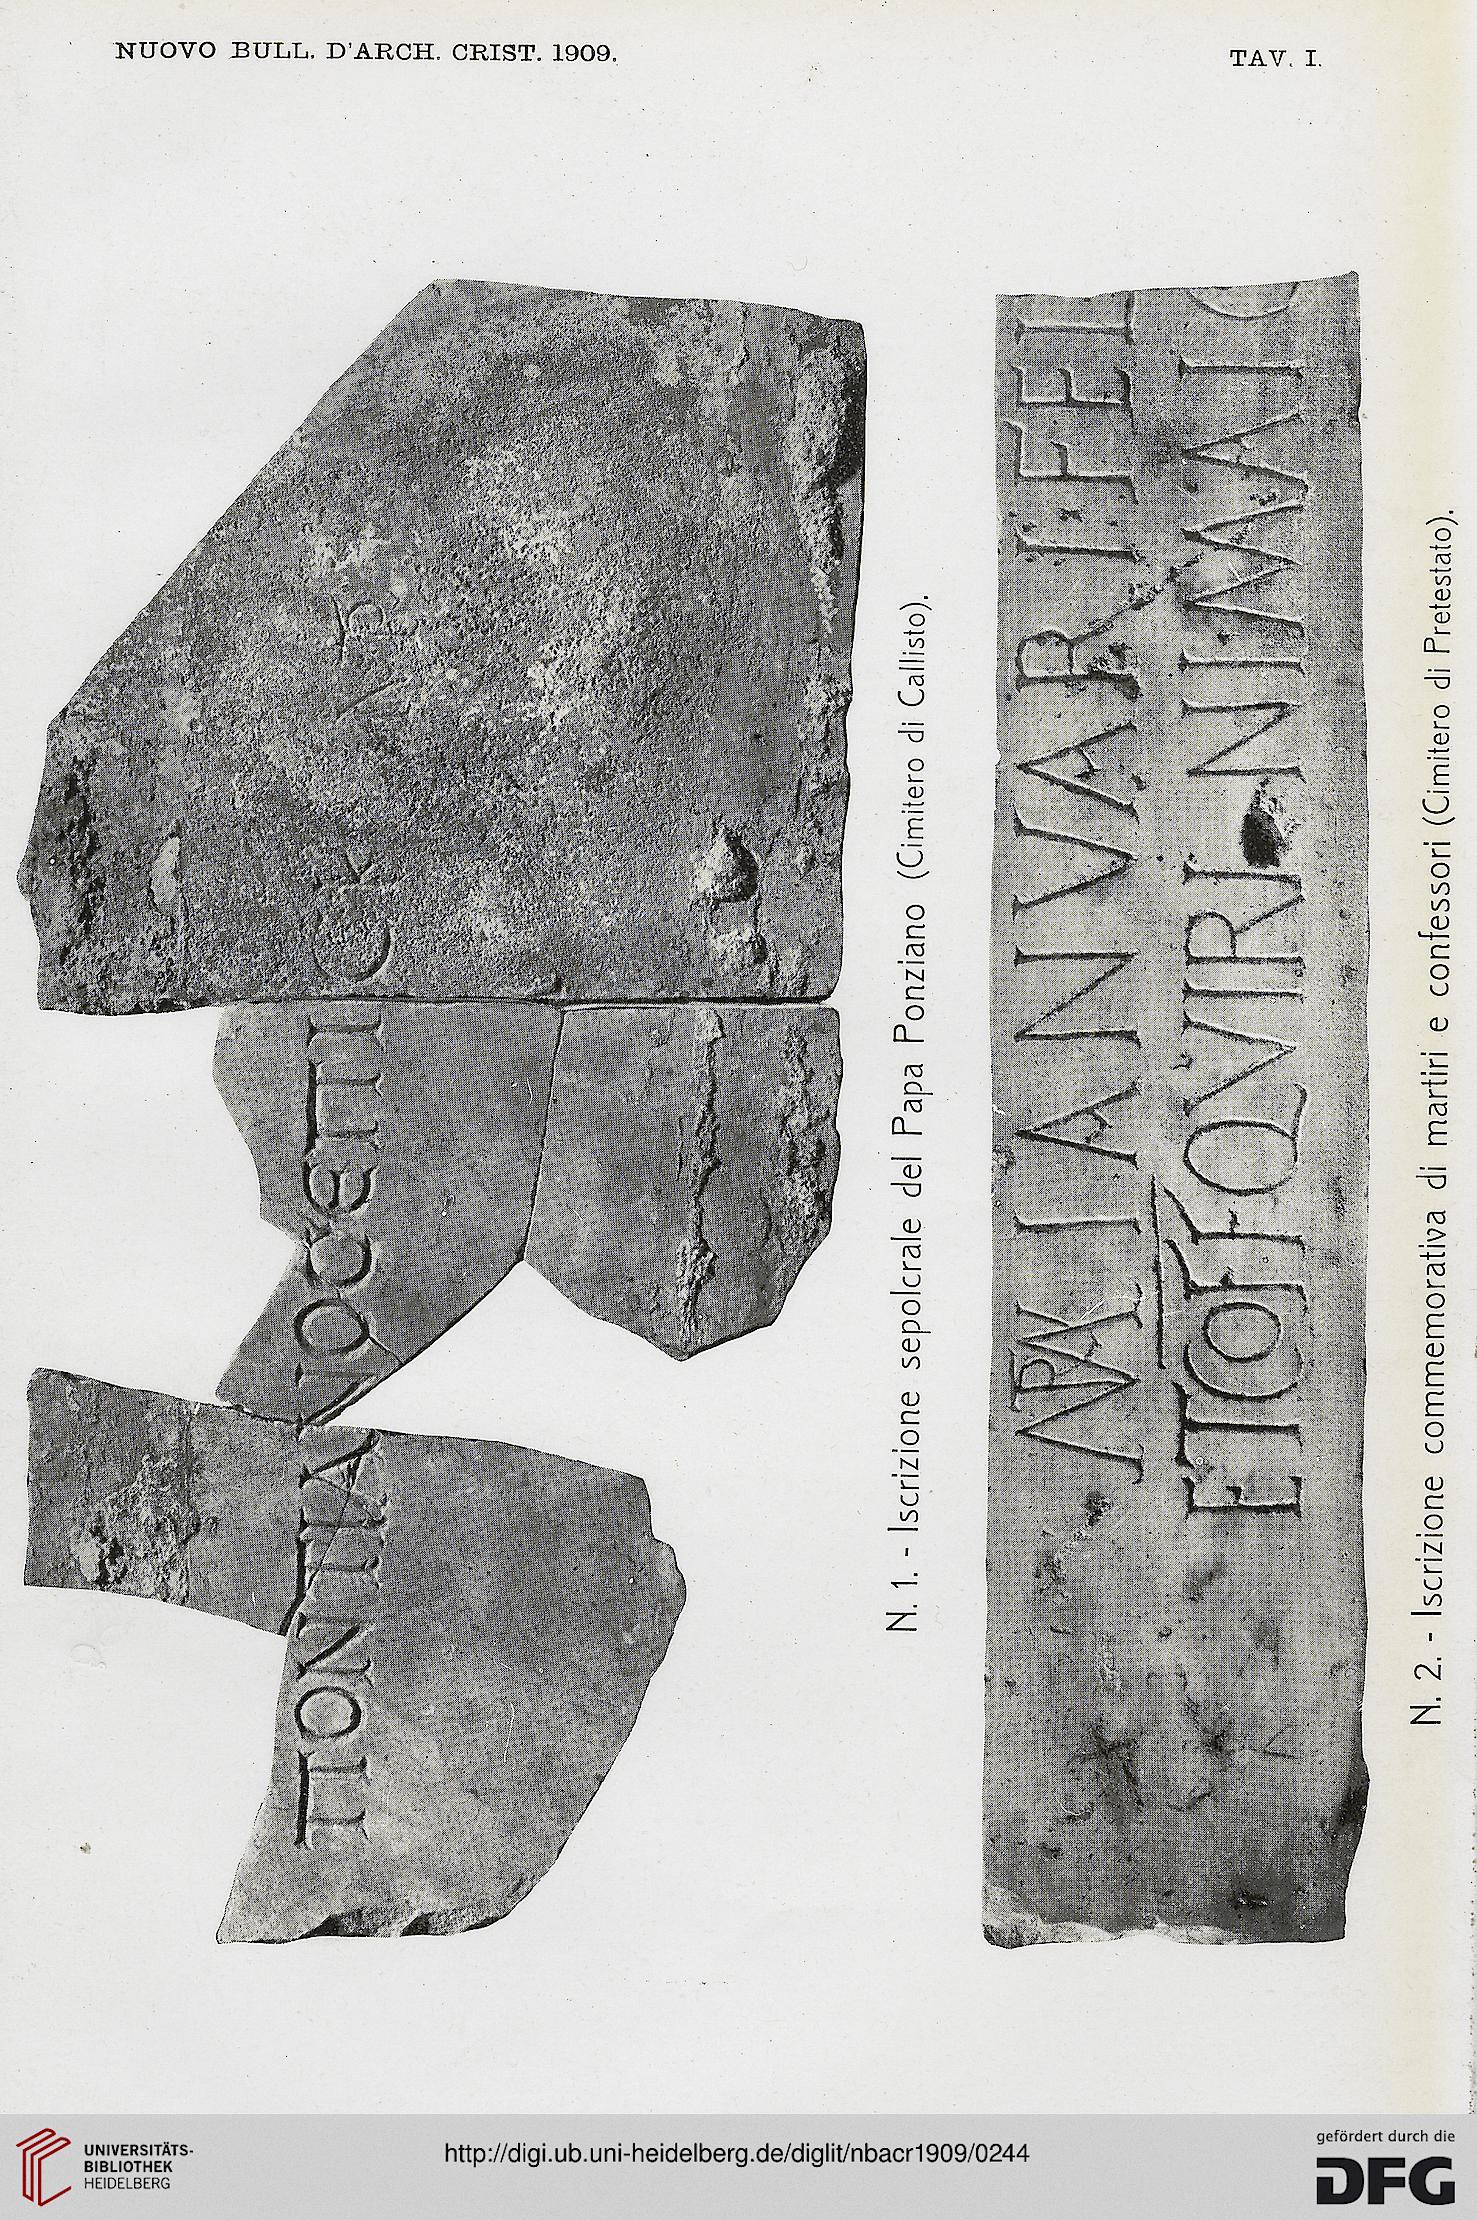 NUOVO BULL. D'ARCH. CRIST. 1909.
TAV. I.
ΠΟΝΤΙΑΝΟϹ ЄΠΙϹΚ ΜΡ
N. 1. - Iscrizione sepolcrale del Papa Ponziano (Cimitero di Callisto).
IANVARI FEL
QVIRINI MAIO
N. 2. - Iscrizione commemorativa di martiri e confessori (Cimitero di Pretestato).
UNIVERSITÄTS-
BIBLIOTHEK
HEIDELBERG
http://digi.ub.uni-heidelberg.de/diglit/nbacr1909/0244
gefördert durch die
DFG